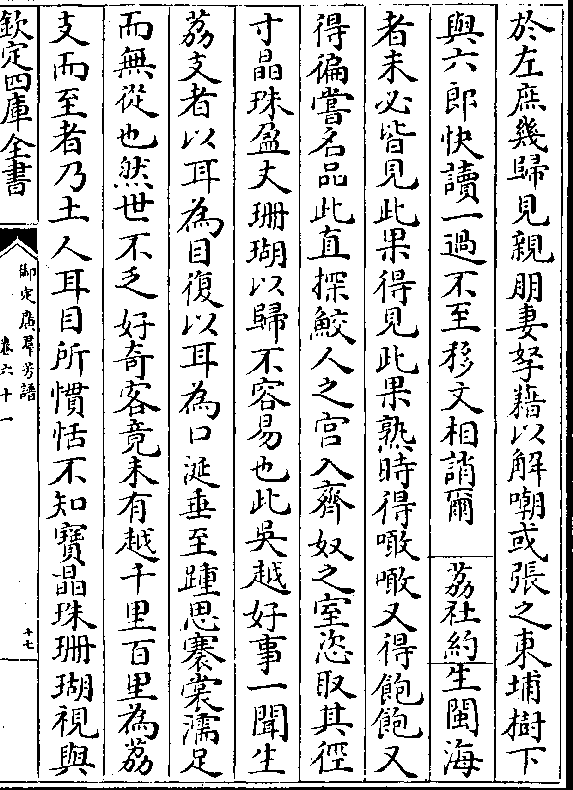 於左庶幾歸見親朋妻孥藉以解嘲或張之東埔樹下
與六郎快讀一過不至移文相誚爾　荔社約生閩海
者未必皆見此果得見此果熟時得噉噉又得飽飽又
得徧嘗名品此直探鮫人之宮入齊奴之室恣取其徑
寸晶珠盈丈珊瑚以歸不容易也此吳越好事一聞生
荔支者以耳為目復以耳為口涎垂至踵思褰裳濡足
而無從也然世不乏好奇客竟未有越千里百里為荔
支而至者乃土人耳目所慣恬不知寶晶珠珊瑚視與
欽定四庫全書
御定廣羣芳譜
卷六十一
十七